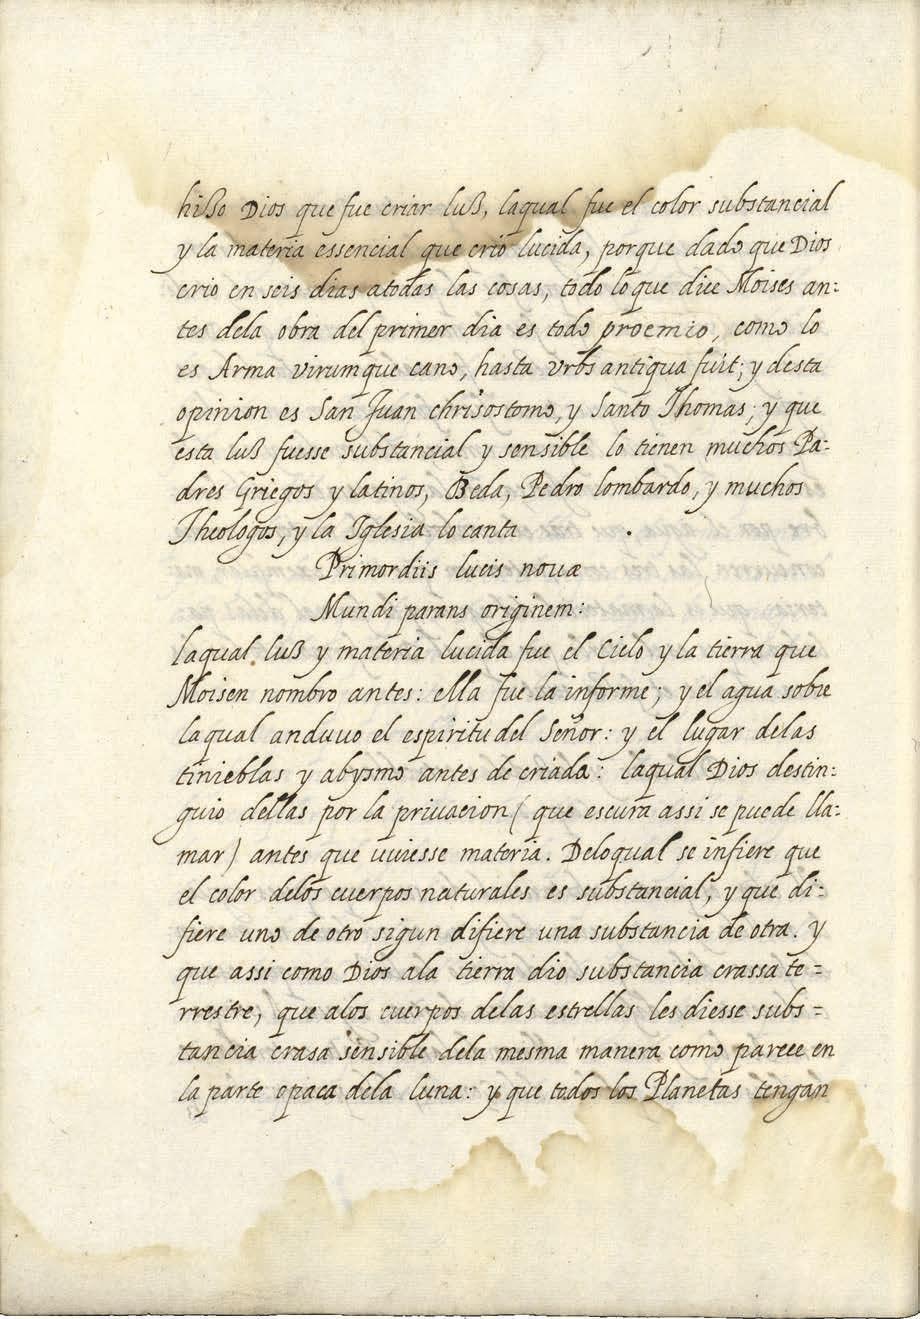 hißo Dios que fue criar luß, laqual fue el color substancial
y la materia essencial que crio lucida, porque dado que Dios
crio en seis dias atodas las cosas, todo loque dice Moises an:
tes dela obra del primer dia es todo proemio, como lo
es Arma virumque cano, hasta vrbs antiqua fuit; y desta
opinion es San Juan chrisostomo, y Santo Thomas; y que
esta luß fuesse substancial y sensible lo tienen muchos Pa:
dres Griegos y latinos, Beda, Pedro lombardo, y muchos
Theologos, y la Iglesia lo canta
Primordiis lucis nouæ
Mundi parans originem:
laqual luß y materia lucida fue el Cielo y la tierra que
Moisen nombro antes: ella fue la informe; y el agua sobre
laqual anduuo el espiritu del Señor: y el lugar delas
tinieblas y abysmo antes de criada: laqual Dios destin:
guio dellas por la priuacion (que escura assi se puede lla:
mar) antes que uuiesse materia. Deloqual se infiere que
el color delos cuerpos naturales es substancial, y que di:
fiere uno de otro sigun difiere una substancia de otra. y
que assi como Dios ala tierra dio substancia crassa te=
rrestre, que alos cuerpos delas estrellas les diesse subs=
tancia crasa sensible dela mesma manera como parece en
la parte opaca dela luna: y que todos los Planetas tengan